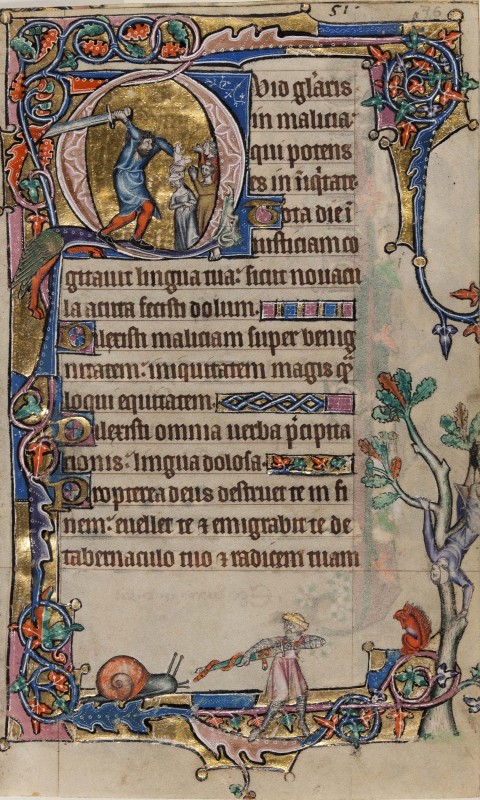 51· 76
Quid gl̄aris
in malicia:
qui potens
es in iniqͥtate
Tota die ī
iusticiam co
gitauit lingua tua: sicut nouacu
la acuta fecisti dolum.
Dilexisti maliciam super benig
nitatem: iniquitatem magis qͣ̄
loqui equitatem.
Dilexisti omnia uerba p̄cipita
tionis: lingua dolosa.
Propterea deus destruet te in fi
nem: euellet te ⁊ emigrabit te de
tabernaculo tuo ⁊ radicem tuam